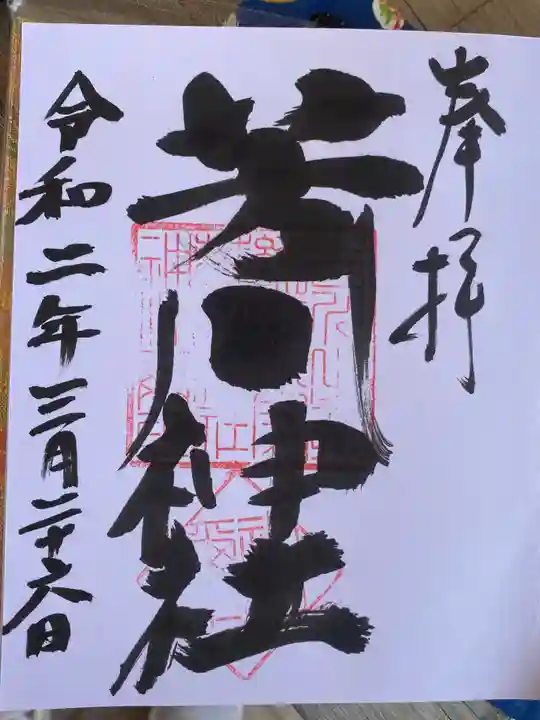 奉拝
神社
令和二年三月二十六日